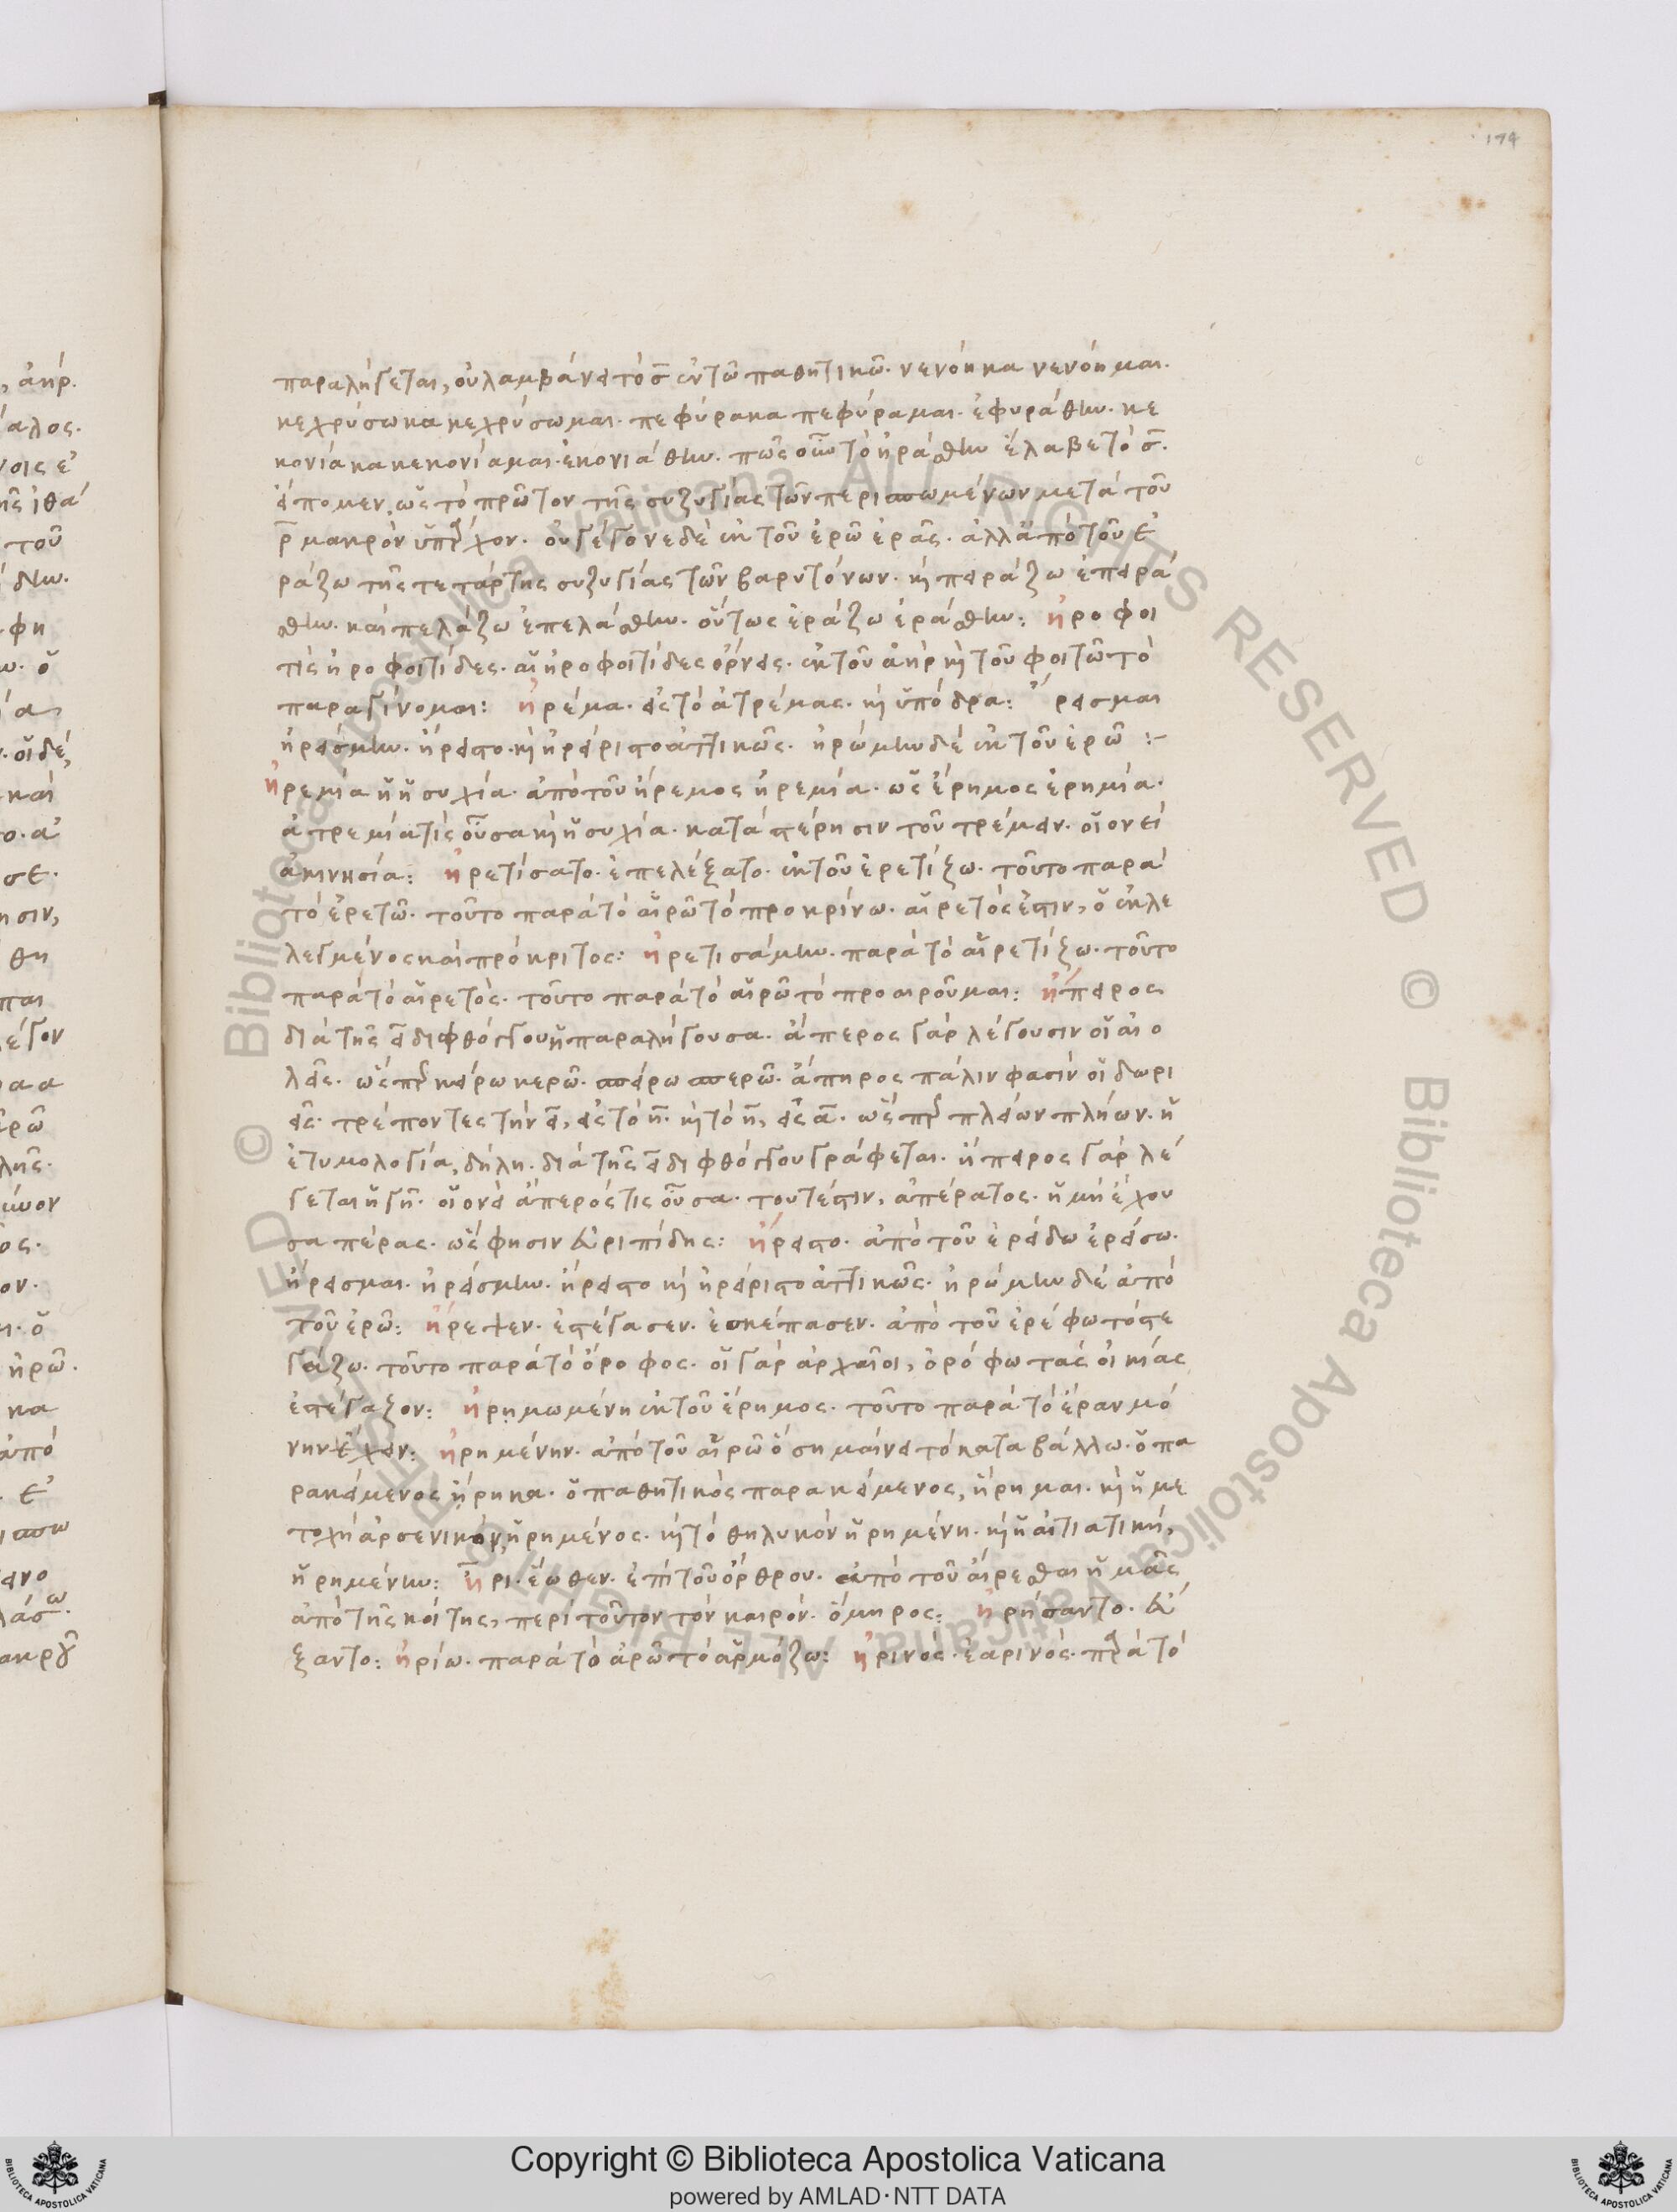 194
παραλήγεται, οὐ λαμβάνει τὸ σ̄ ἐν τῶ παθητικῶ. νενόηκα νενόημαι.
κεχρύσωκα κεχρύσωμαι. πεφύρακα πεφύραμαι. ἐφυράθην. κε
κονίακα κεκονίαμαι. ἐκονιάθην. πῶς οὖν τὸ ἠράσθην ἔλαβε τὸ σ̄.
εἴπομεν, ὡς τὸ πρῶτον τῆς συζυγίας τῶν περισπωμένων μετὰ τοῦ
ρ̄ μακρὸν ὑπῆρχον. οὐ γέγονε δὲ ἐκ τοῦ ἐρῶ ἐρᾶς. ἀλλ' ἀπὸ τοῦ ἐ
ράζω τῆς τετάρτης συζυγίας τῶν βαρυτόνων. κὴ πειράζω ἐπειρά
σθην. καὶ πελάζω ἐπελάσθην. οὕτως ἐράζω ἐράσθην: ἠροφοι
τὶς ἠροφοιτίδες. αἱ ἠροφοιτίδες ὄρνεις. ἐκ τοῦ ἀὴρ κὴ τοῦ φοιτῶ τὸ
παραγίνομαι: ἠρέμα. εἰς τὸ ἀτρέμας. κὴ ὑπόδρα: ἤρεισμαι
ἠρείσμην. ἤρειστο. κὴ ἠρήριστο ἀττικῶς. ἠρώμην δὲ ἐκ τοῦ ἐρῶ :-
ἠρεμία ἡ ἡσυχία. ἀπὸ τοῦ ἤρεμος ἠρεμία. ὡς ἔρημος ἐρημία.
ἀτρεμία τὶς οὖσα κὴ ἡσυχία. κατὰ στέρησιν τοῦ τρέμειν. οἱονεὶ
ἀκινησία: ἠρετίσατο. ἐπελέξατο. ἐκ τοῦ ἐρετίζω. τοῦτο παρὰ
τὸ ἐρετῶ. τοῦτο παρὰ τὸ αἱρῶ τὸ προκρίνω. αἱρετός ἐστιν, ὁ ἐκλε
λεγμένος καὶ πρόκριτος: ἠρετισάμην. παρὰ τὸ αἱρετίζω. τοῦτο
παρὰ τὸ αἱρετὸς. τοῦτο παρὰ τὸ αἱρῶ τὸ προαιροῦμαι: ἤπειρος
διὰ τῆς ει διφθόγγου ἡ παραλήγουσα. ἄπερος γὰρ λέγουσιν οἱ αἰο
λεῖς. ὥσπερ κείρω κερῶ. σπείρω σπερῶ. ἄπηρος πάλιν φασὶν οἱ δωρι
εῖς. τρέποντες τὴν ει, εἰς τὸ η̄. κὴ τὸ η̄, εἰς ᾱ. ὥσπερ πλείων πλήων. ἡ
ἐτυμολογία, δήλη. διὰ τῆς ει διφθόγγου γράφεται. ἤπειρος γὰρ λέ
γεται ἡ γῆ. οἱονεὶ ἄπερός τις οὖσα. τουτέστιν, ἀπέρατος. ἡ μὴ ἔχου
σα πέρας. ὥς φησιν εὐριπίδης: ἤρειστο. ἀπὸ τοῦ ἐρείδω ἐρείσω.
ἤρεισμαι. ἠρείσμην. ἤρειστο κὴ ἠρήριστο ἀττικῶς. ἠρώμην δὲ ἀπὸ
τοῦ ἐρῶ: ἤρεψεν. ἐστέγασεν. ἐσκέπασεν. ἀπὸ τοῦ ἐρέφω τὸ στε
γάζω. τοῦτο παρὰ τὸ ὄροφος. οἱ γὰρ ἀρχαῖοι, ὀρόφω τὰς οἰκίας
ἐστέγαζον: ἠρημωμένη ἐκ τοῦ ἔρημος. τοῦτο παρὰ τὸ ἔραν μό
νην ἔχειν: ἠρημένην. ἀπὸ τοῦ αἱρῶ ὃ σημαίνει τὸ καταβάλλω. ὁ πα
ρακείμενος ἥρηκα. ὁ παθητικὸς παρακείμενος, ἥρημαι. κὴ ἡ με
τοχὴ ἀρσενικὸν, ἡρημένος. κὴ τὸ θηλυκὸν ἡρημένη. κὴ ἡ αἰτιατικὴ,
ἡρημένην: ἦρι. ἕωθεν. ἐπὶ τοῦ ὄρθρου. ἀπὸ τοῦ αἴρεσθαι ἡμᾶς
ἀπὸ τῆς κοίτης, περὶ τοῦτον τὸν καιρόν. ὅμηρος: ἠρήσαντο. εὔ
ξαντο: ἠρίω. παρὰ τὸ ἀρῶ τὸ ἁρμόζω: ἠρινός. ἐαρινὸς. παρὰ τὸ